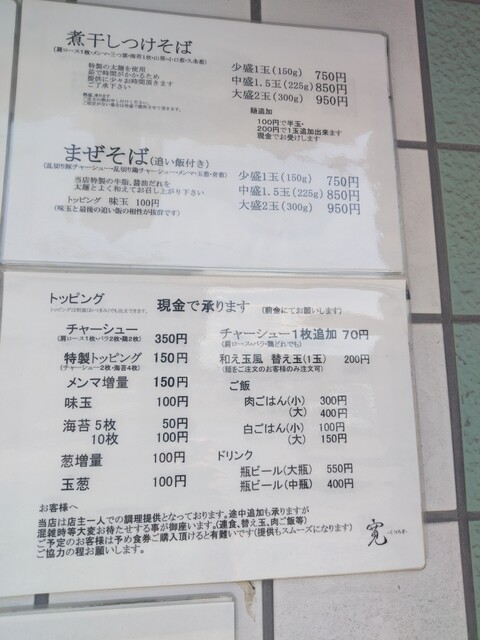 煮干しつけそば
(肩ロース1枚・メンマ・三つ葉・海苔1枚・山葵・小口葱・久条葱)
少盛1玉(150g) 750円
特製の太麺を使用
茹で時間がかかるため
提供に少々お時間頂きます
ご了承下さい
中盛1.5玉(225g) 850円
大盛2玉(300g) 950円
麺追加
100円で半玉・
200円で1玉追加出来ます
現金でお受けします
まぜそば(追い飯付き)
(乱切り豚チャーシュー・乱切り鶏チャーシュー・メンマ・玉葱・青葱)
少盛1玉(150g) 750円
当店特製の牛脂、醤油だれを
太麺とよく和えてお召し上がり下さい
中盛1.5玉(225g) 850円
大盛2玉(300g) 950円
トッピング 味玉 100円
(味玉と最後の追い飯の相性が抜群です)
トッピング
現金で承ります (前金にてお願いします)
チャーシュー 350円
(肩ロース1枚・バラ2枚・鶏2枚)
特製トッピング 150円
(チャーシュー2枚・海苔4枚)
メンマ増量 150円
味玉 100円
海苔 5枚 50円
10枚 100円
葱増量 100円
玉葱 100円
チャーシュー1枚追加 70円
(肩ロース・バラ・鶏どれでも)
和え玉風 替え玉(1玉) 200円
(麺をご注文のお客様のみ注文可)
ご飯
肉ごはん(小) 300円
(大) 400円
白ごはん(小) 100円
(大) 150円
ドリンク
瓶ビール(大瓶) 550円
瓶ビール(中瓶) 400円
お客様へ
当店は店主一人での調理提供となっております。途中追加も承りますが
混雑時等大変お待たせする事が御座います。(連食、替え玉、肉ご飯等)
ご予定のお客様は予め食券ご購入頂けると有難いです(提供もスムーズになります)
ご協力の程お願いします。
寛